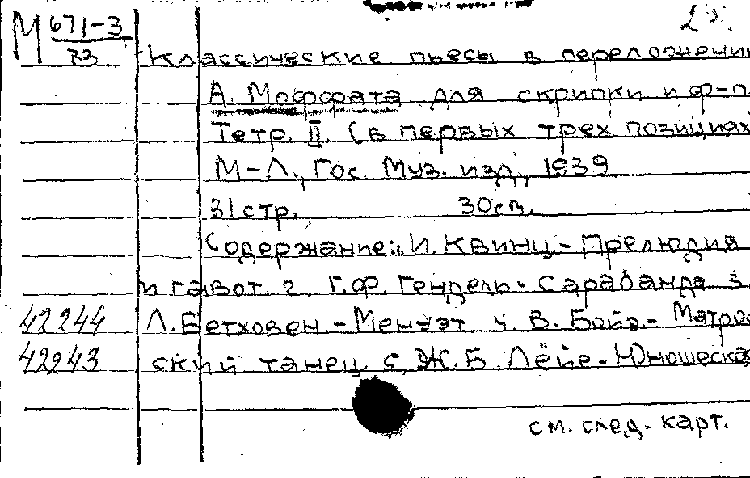 М 671-3
73
Классические пьесы в переложении
А. Моффата для скрипки и ф-п
Тетр. II. (в первых трех позициях
М-Л., Гос. Муз. изд., 1939
31 стр. 30 см.
Содержание: И. Квинц - Прелюдия
и гавот 2. Г.Ф. Гендель - Сарабанда 3.
42244 Л. Бетховен - Менуэт 4. В. Бойз - Матрос
42243 ский танец 5. Ж.Б. Лёйе - Юношеска
см. след. карт.